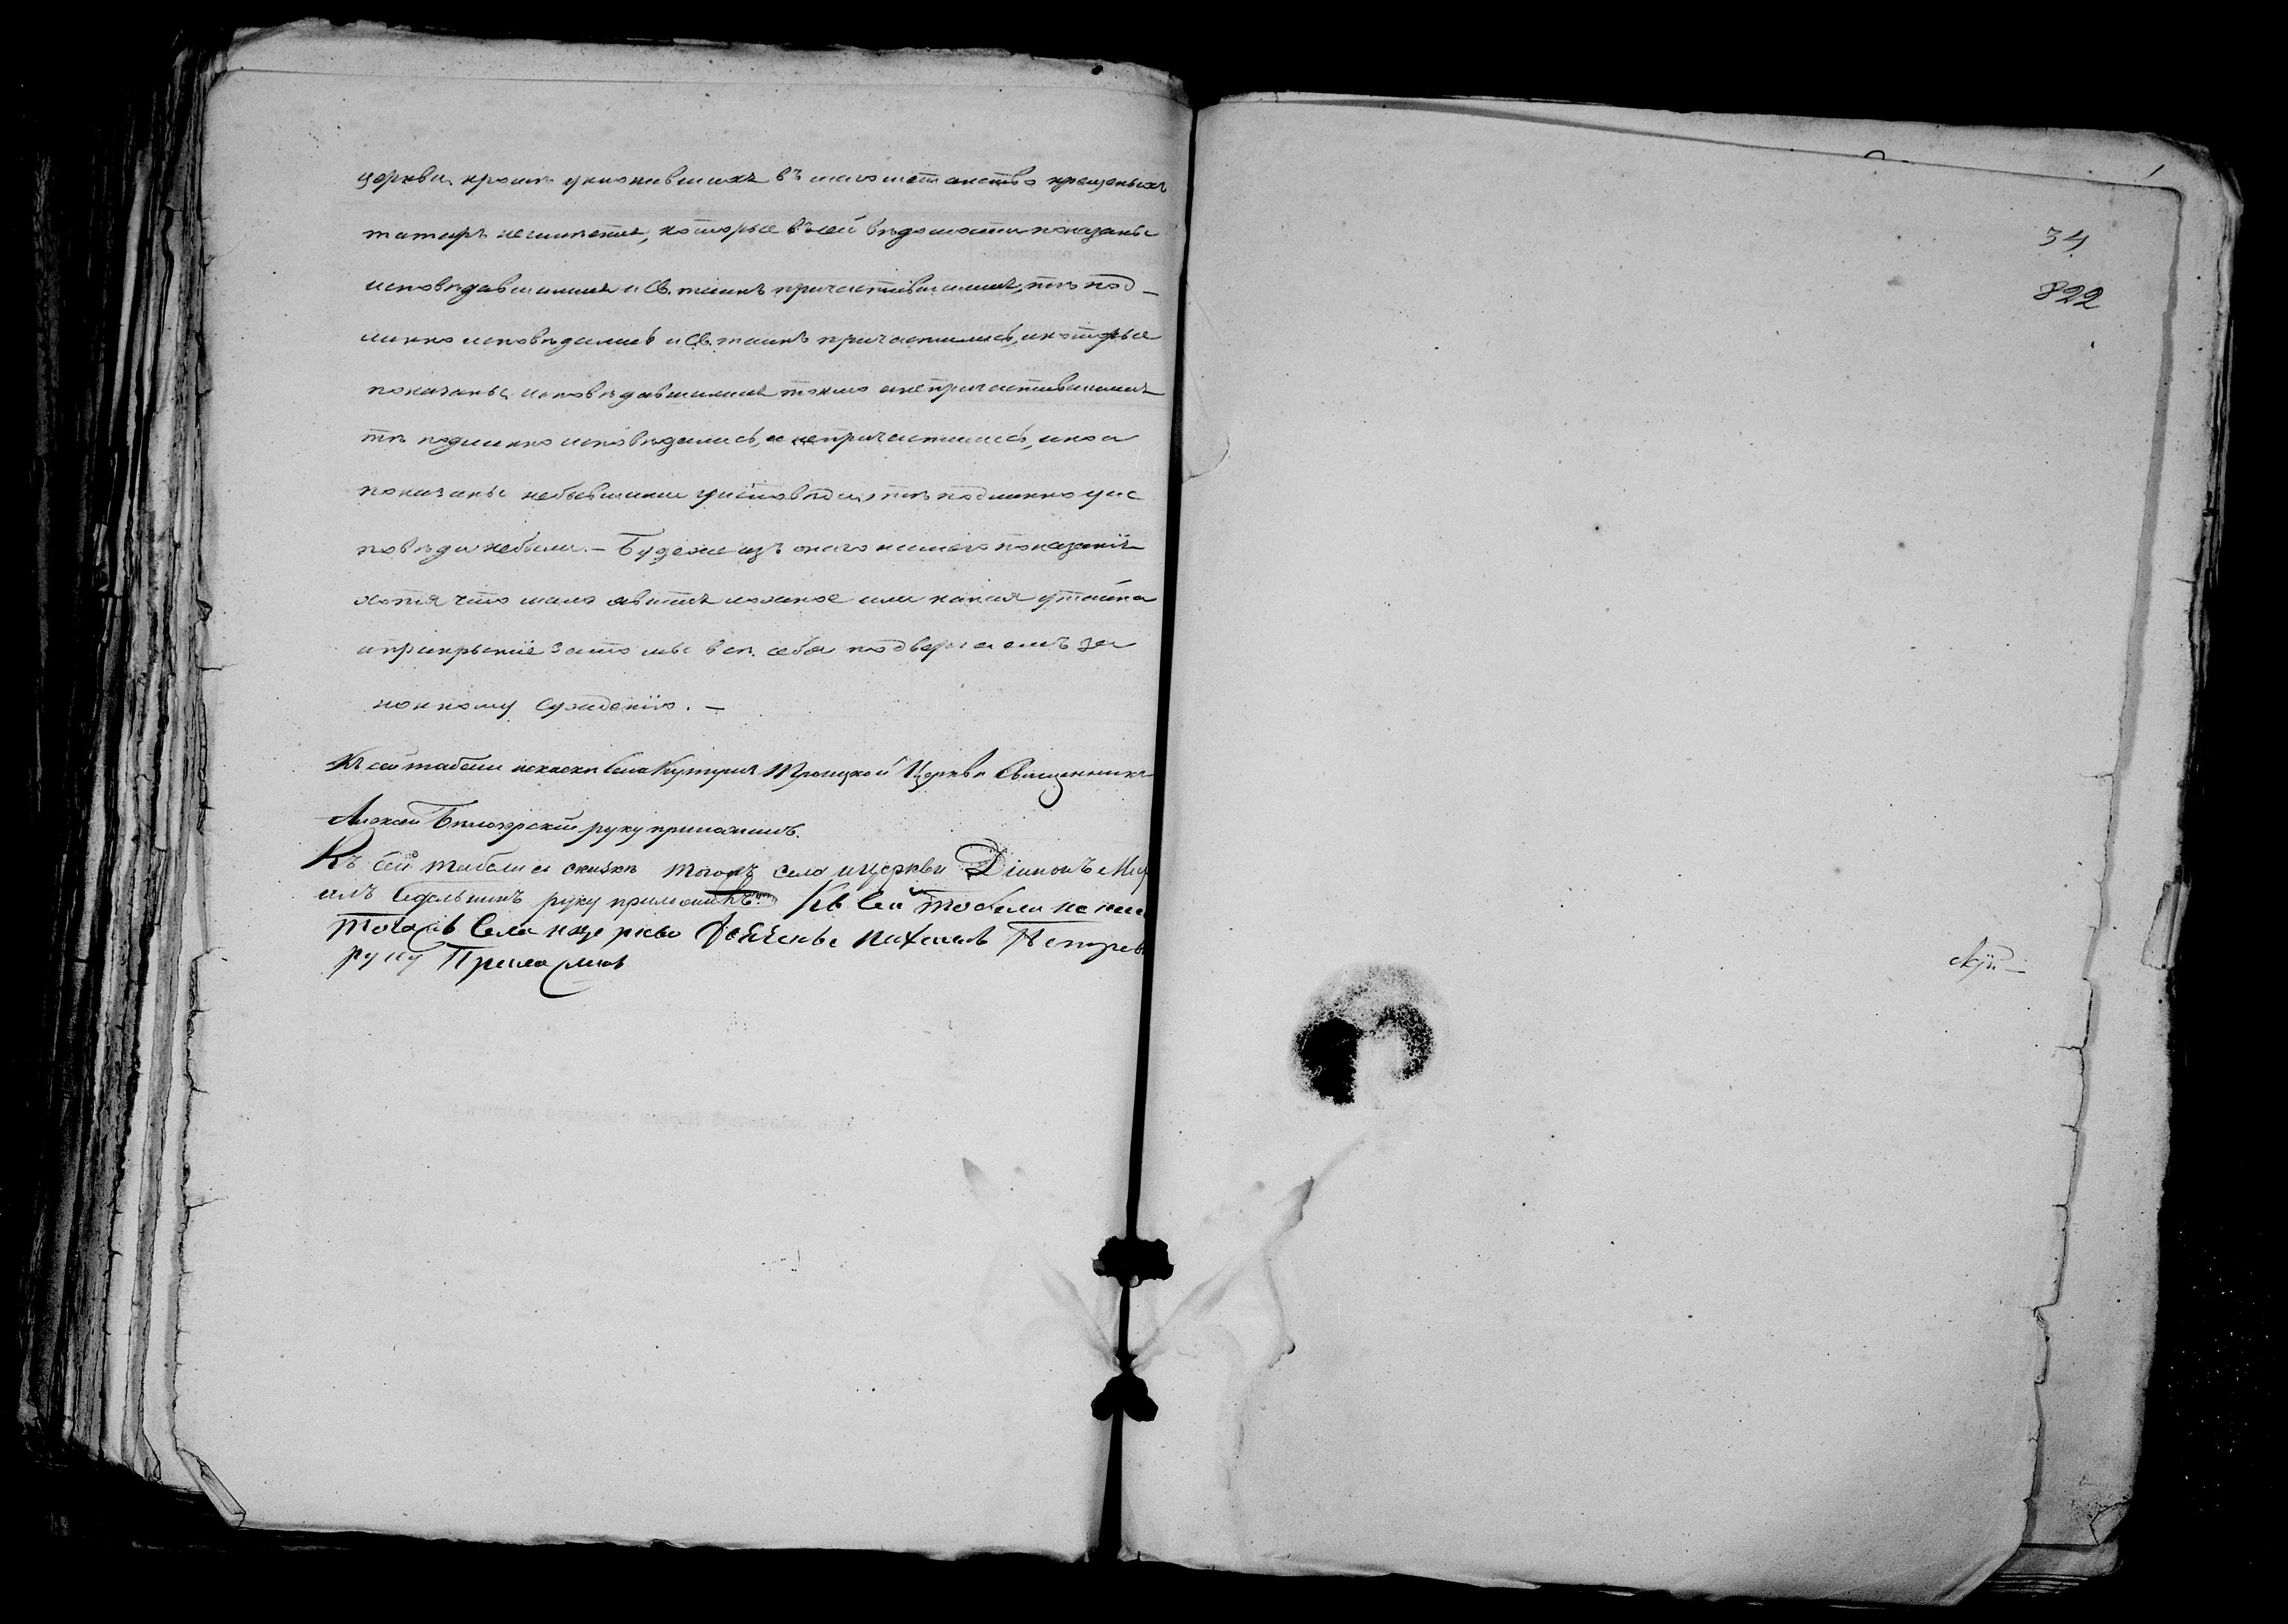 церкви, кромѣ уклонившихъ въ магометанство крещеныхъ
татаръ неимѣется, которые въ сей вѣдомости показаны
исповѣдавшимися и Св. таинъ причастившимися, тѣ под-
линно исповѣдались и Св. таинъ причастились, и которые
показаны исповѣдавшимися токмо а непричастившимися
тѣ подлинно исповѣдались, а непричастились, и кои
показаны небывшими у исповѣди, тѣ подлинно у ис
повѣди небыли. — Буде же изъ онаго нашего показанія
хотя что мало явится ложное или какая утайка
и прикрытіе за то мы всѣ себя подвергаемъ за
конному сужденію. —
Къ сей табели и сказкѣ села Троицкой Церкви Священникъ
Алексѣй руку приложилъ.
Къ сей табели и сказкѣ тогожъ села и церкви Діаконъ
руку приложилъ. Къ сей табели
тогожъ Села
руку Приложилъ
34
822